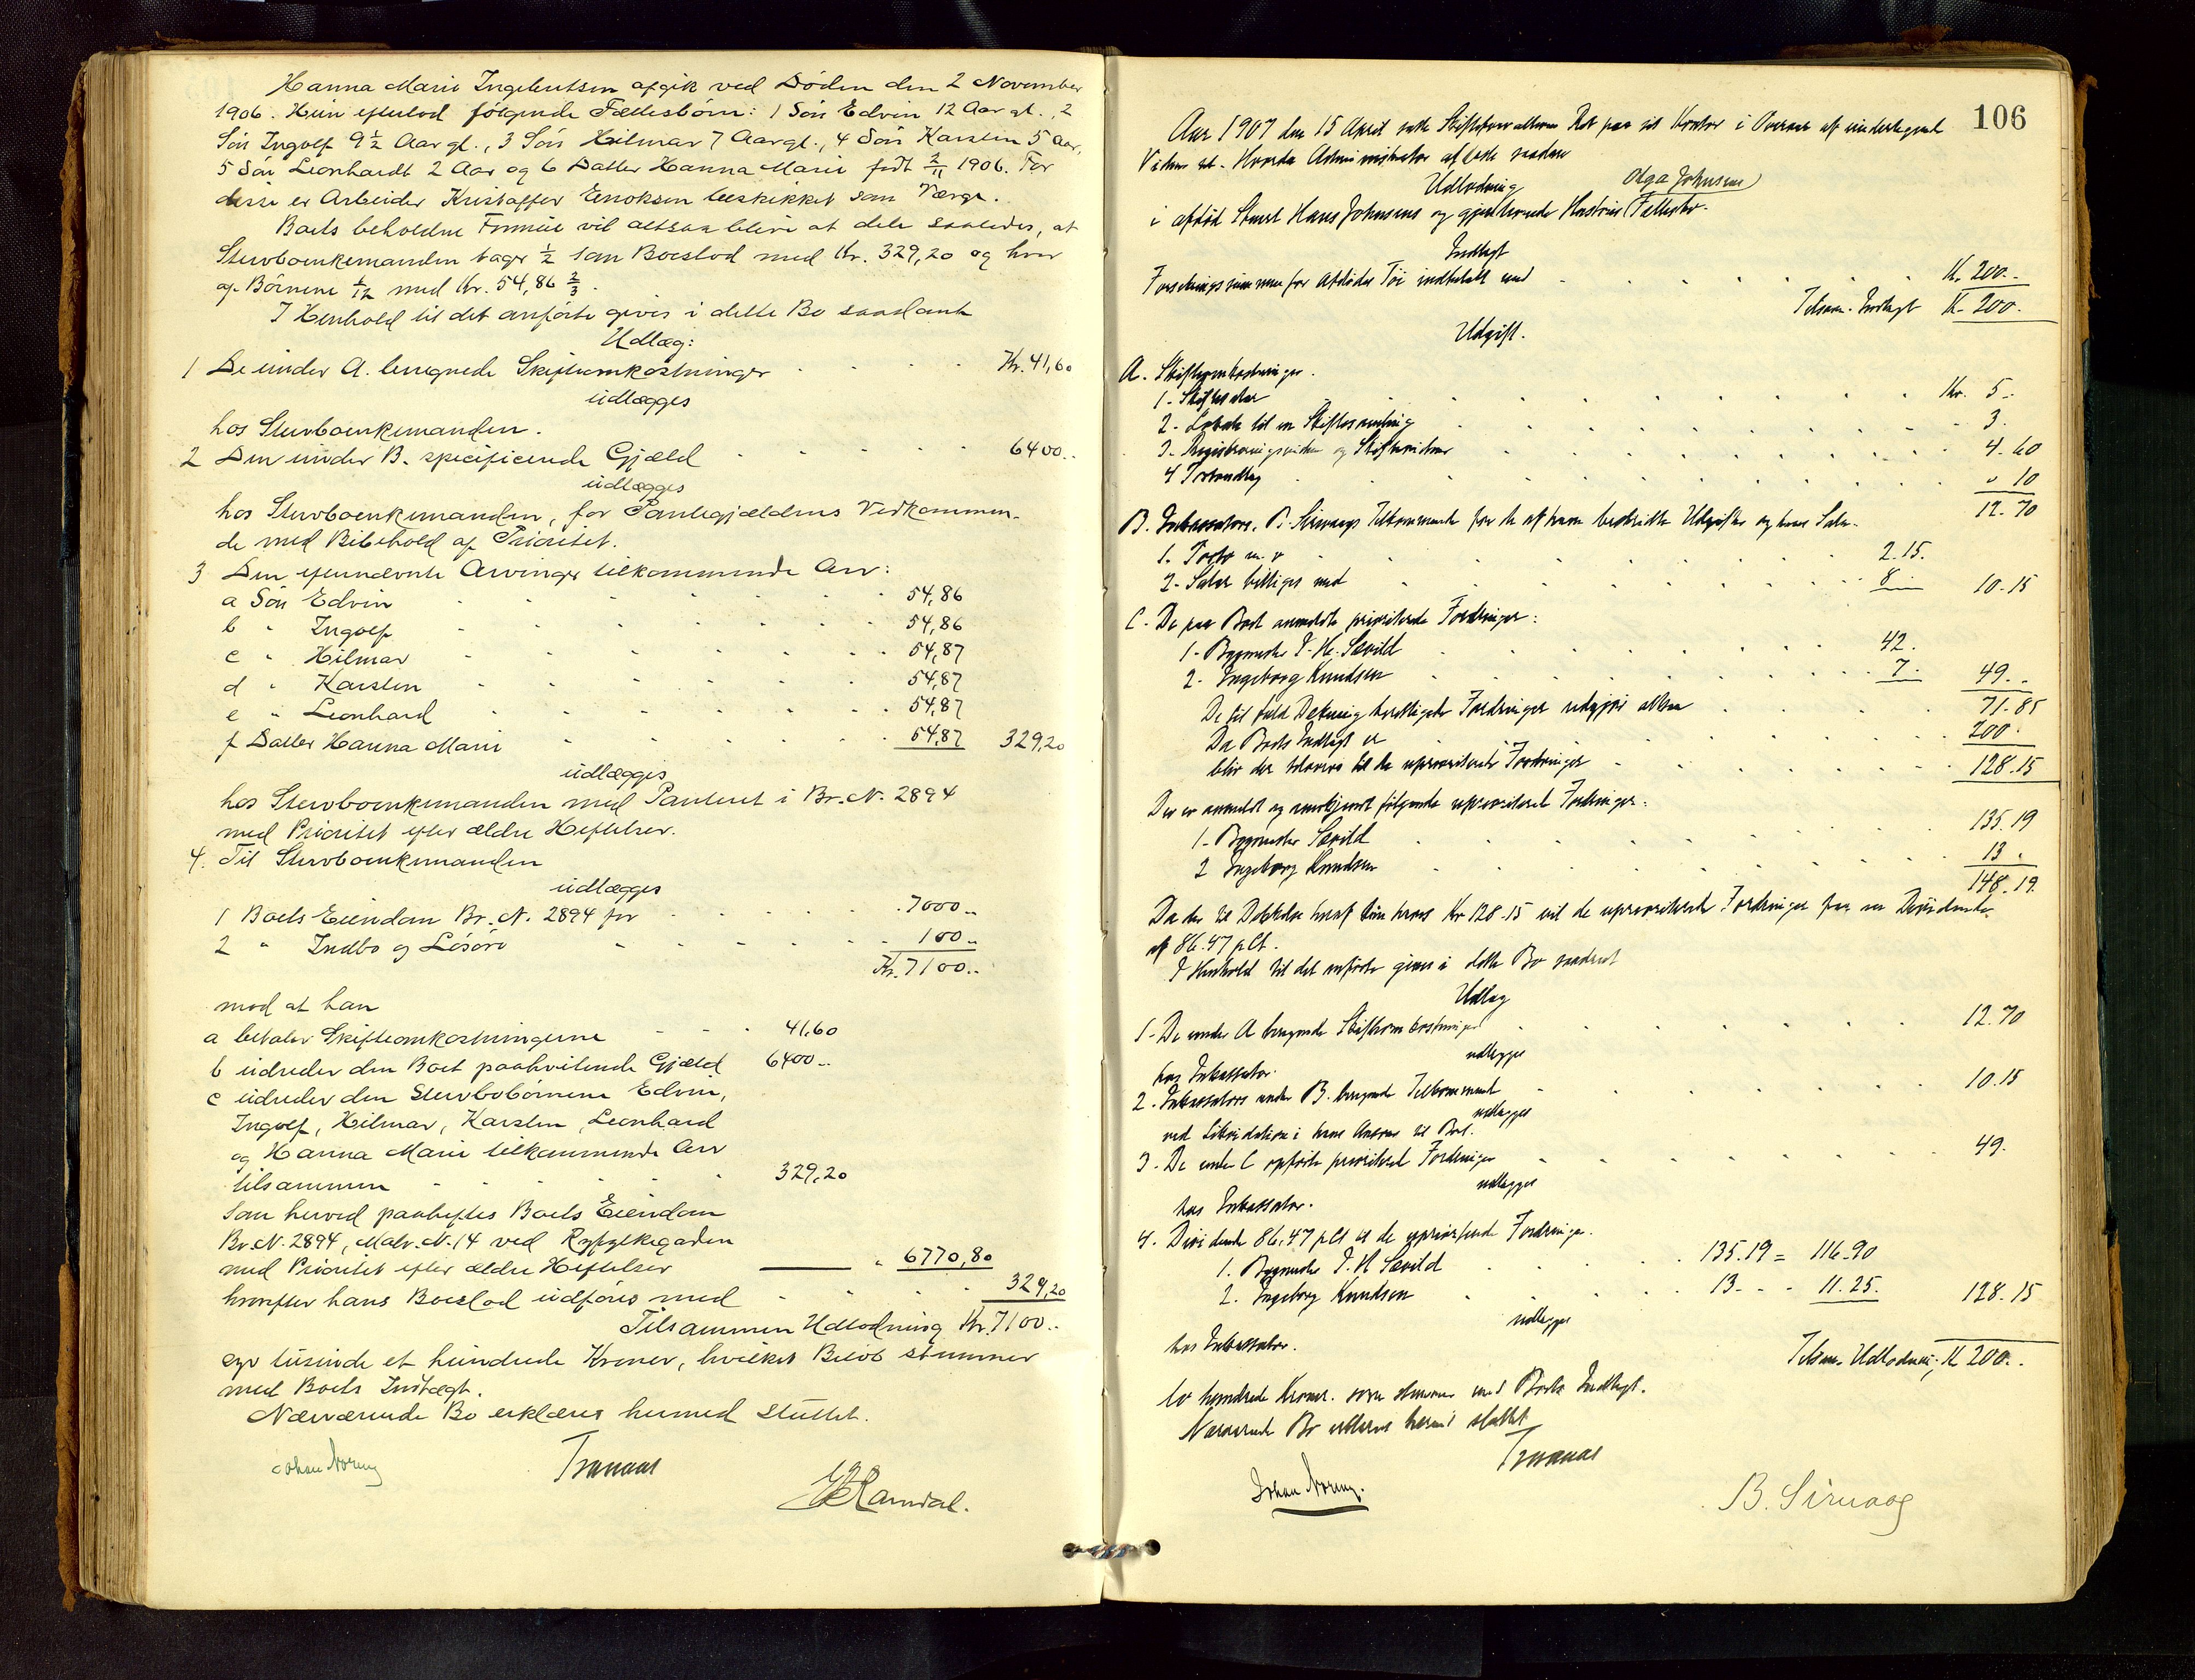 Hanna Marie Ingebretsen afgik ved Døden den 2 November
1906. Hun efterlod følgende Fællesbørn: 1 Søn Edvin 12 Aar gl., 2
Søn Ingolf 9 ½ Aar gl., 3 Søn Hilmar 7 Aar gl., 4 Søn Karsten 5 Aar,
5 Søn Leonhardt 2 Aar og 6 Datter Hanna Marie født 2/11 1906. For
disse er Arbeider Kristoffer Enoksen beskikket som Værge.
Boets beholdne Formue vil altsaa blive at dele saaledes, at
Stervboenkemanden tager ½ som Boeslod med Kr. 329,20 og hver
af Børnene 1/12 med Kr. 54,86 2/3.
I Henhold til det anførte gives i dette Bo saadant
Udlæg:
1 De under A. beregnede Skifteomkostninger Kr. 41,60
udlægges
hos Stervboenkemanden.
2 Den under B. specificerede Gjæld 6400..
udlægges
hos Stervboenkemanden, for Pantegjældens Vedkommen-
de med Bibehold af Prioritet.
3 Den efternævnte Arvinger tilkommende Arv:
a Søn Edvin 54,86
b " Ingolf 54,86
c " Hilmar 54,87
d " Karsten 54,87
e " Leonhard 54,87
f Datter Hanna Marie 54,87 329,20
udlægges
hos Stervboenkemanden med Panteret i Br. N. 2894
med Prioritet efter ældre Heftelser.
4. Til Stervboenkemanden
udlægges
1 Boets Eiendom Br. N. 2894 for 7000..
2 " Indbo og Løsøre 100..
Kr. 7100..
mod at han
a betaler Skifteomkostningerne 41,60
b udreder den Boet paahvilende Gjæld 6400..
c udreder den Stervbobørnene Edvin,
Ingolf, Hilmar, Karsten, Leonhard
og Hanna Marie tilkommende Arv
tilsammen 329,20
som herved paaheftes Boets Eiendom
Br. N. 2894, Matr. N. 14 ved Ryfylkegaden
med Prioritet efter ældre Heftelser " 6770,80
hvorefter hans Boeslod udføres med 329,20
Tilsammen Udlodning Kr. 7100..
syv tusinde et hundrede Kroner, hvilket Beløb stemmer
med Boets Indtægt.
Nærværende Bo erklæres hermed sluttet.
Johan Noreng Tranaas
Ramdal.
106
Aar 1907 den 15 April satte Skifteforvalteren Ret paa sit Kontor i Overvær af undertegnede
Vidner
Udlodning Olga Johnsens
i afdød Stuert Hans Johnsens og gjenlevende Hustrus Fællesbo.
Indtægt
Forsikringssummen for afdødes Tøi indbetalt med Kr. 200..
Tilsam. Indtægt Kr. 200.
Udgift.
A. Skifteomkostninger.
1. Skiftesalar Kr. 5..
2. Lokale til en Skiftesamling 3.
3. Registreringsvidner og Skiftevidner 4.60
4 Forhandling " 10
12.70
B. Inkassators, B. Sirnaags Tilkommende for de af ham bestridte Udgifter og hans Salar.
1. Porto m.v 2.15.
2. Salar billiges med 8 10.15
C. De paa Boet anmeldte prioriterede Fordringer:
1. Bygmester T. H. Sævild 42.
2. Ingeborg Knudsen 7. 49..
De til fuld Dækning berettigede Fordringer udgjør altsaa 71.85
Da Boets Indtægt er 200.
blir der tilovers til de uprioriterede Fordringer 128.15
Der er anmeldt og anerkjendt følgende uprioriterede Fordringer:
1. Bygmester Sævild 135.19
2 Ingeborg Knudsen 13.
148.19.
Da der til Dækkelse heraf kun haves Kr 128.15 vil de uprioriterede Fordringer faa en Dividende
af 86.47 pCt.
I Henhold til det anførte gives i dette Bo saadant
Udlæg
1. De under A beregnede Skifteomkostninger 12.70
udlægges
hos Inkassator.
2. Inkassators under B. beregnede Tilkommende 10.15
udlægges
ved Likvidation i hans Ansvar til Boet.
3. De under C opførte prioriterede Fordringer 49.
udlægges
hos Inkassator.
4. Dividende 86.47 pCt af de uprioriterede Fordringer.
1. Bygmester T. H Sævild 135.19 = 116.90
2. Ingeborg Knudsen 13. - - 11.25. 128.15
udlægges
hos Inkassator.
Tilsam. Udlodning Kr 200..
to hundrede Kroner. som stemmer med Boets Indtægt.
Nærværende Bo erklæres hermed sluttet
Tranaas
Johan Noreng.
B. Sirnaag